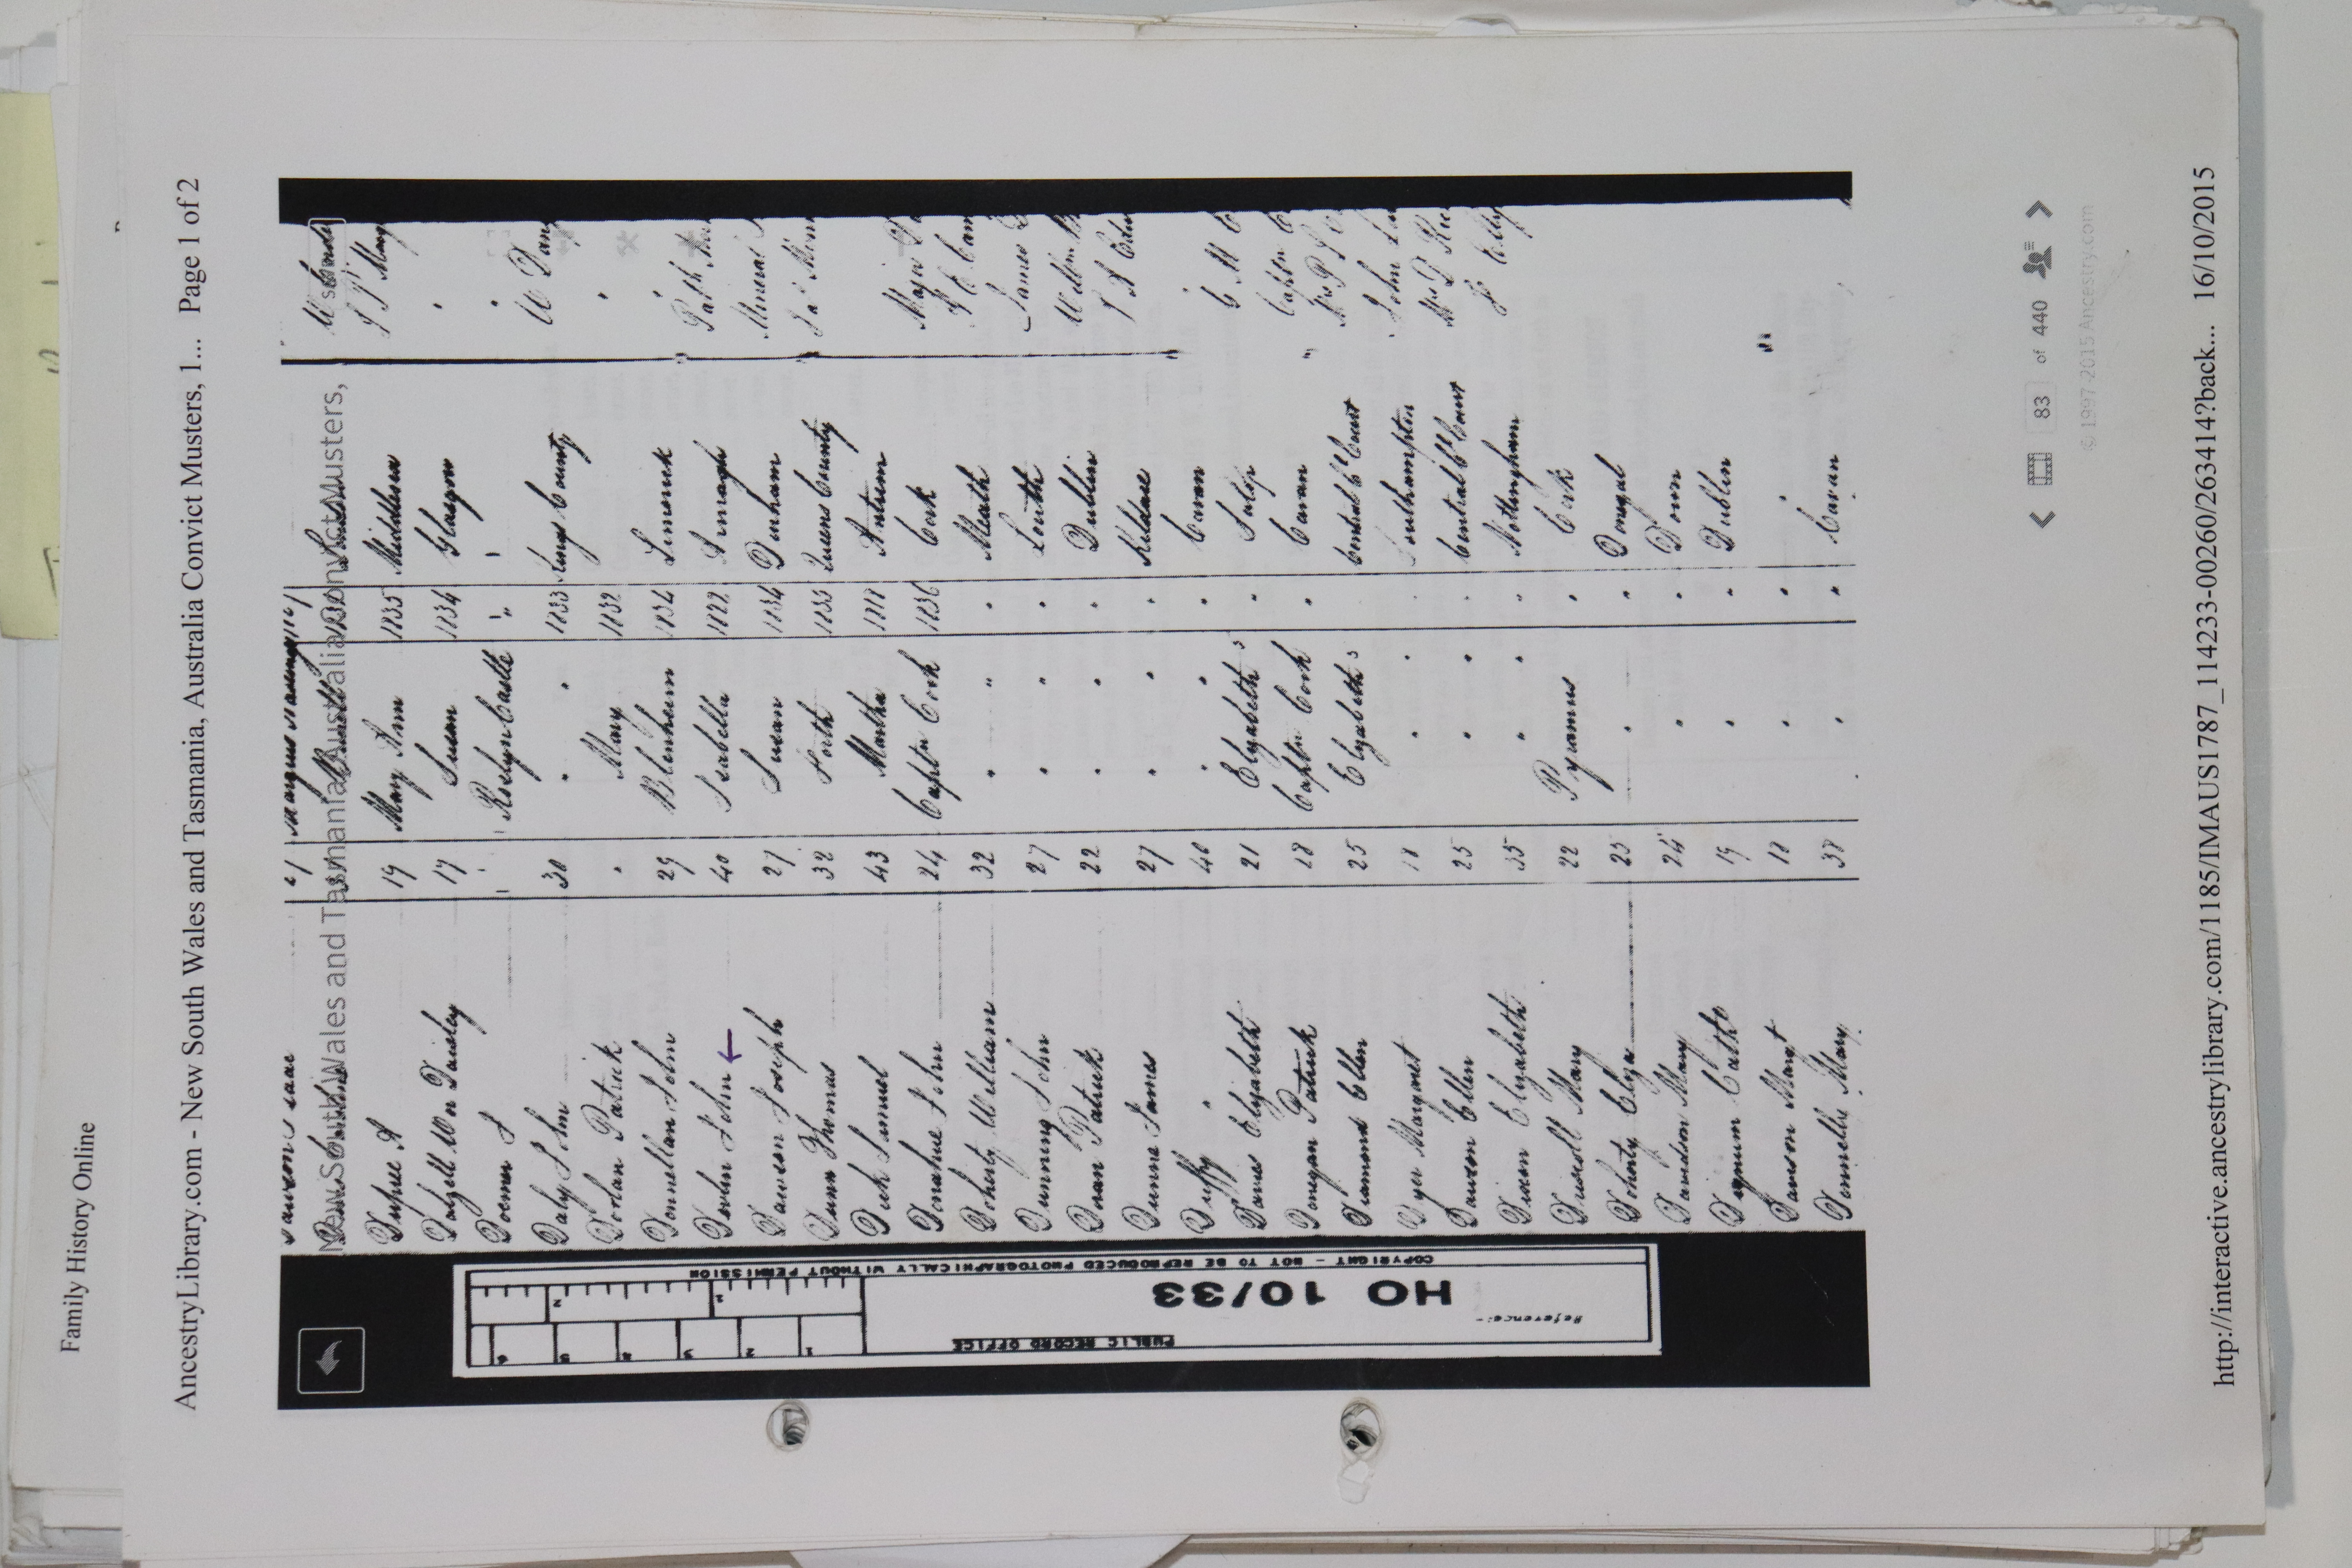 Family History Online
AncestryLibrary.com - New South Wales and Tasmania, Australia Convict Musters, 1... Page 1 of 2
New South Wales and Tasmania, Australia Convict Musters,
Dupree A 19 Mary Ann 1835 Middlesex
Dalzell Wm 17 Susan 1834 Glasgow "
Doeman J " Roslyn Castle " "
Daly John 30 " " 1833 Kings County
Dorlan Patrick " Mary 1832 "
Donnellan John 29 Blenheim 1834 Limerick "
Devlin John ← 40 Isabella 1822 Armagh
Dawson Joseph 27 Susan 1834 Durham Mineral
Dunn Thomas 32 Forth 1835 Queens County
Dick Samuel 43 Martha 1818 Antrim
Donahue John 24 Captn Cook 1836 Cork Major
Doherty William 32 " " " Meath
Dunning John 27 " " " Louth James
Doran Patrick 22 " " " Dublin William
Dunne James 27 " " " Kildare
Duffy " 40 " " " Cavan "
Davies Elizabeth 21 Elizabeth 3 " Salop
Donegan Patrick 18 Captn Cook " Cavan Captn
Diamond Ellen 25 Elizabeth 3 " Central Cl Court Mrs
Dyer Margaret 18 " " " Southampton John
Dawson Ellen 25 " " " Central Cl Court Mrs
Dixon Elizabeth 35 " " " Nottingham
Driscoll Mary 22 Pyramus " Cork
Doherty Eliza 23 " " Donegal
Davidson Mary 24 " " Down
Dignum Cathe 19 " " Dublin
Dawson Margt 18 " " "
Donnelly Mary 38 " " Cavan
PUBLIC RECORD OFFICE
Reference:-
HO 10/33
COPYRIGHT - NOT TO BE REPRODUCED PHOTOGRAPHICALLY WITHOUT PERMISSION
1 2 3 4 5 6
1 2
83 of 440
© 1997-2015 Ancestry.com
http://interactive.ancestrylibrary.com/1185/IMAUS1787_114233-00260/263414?back... 16/10/2015